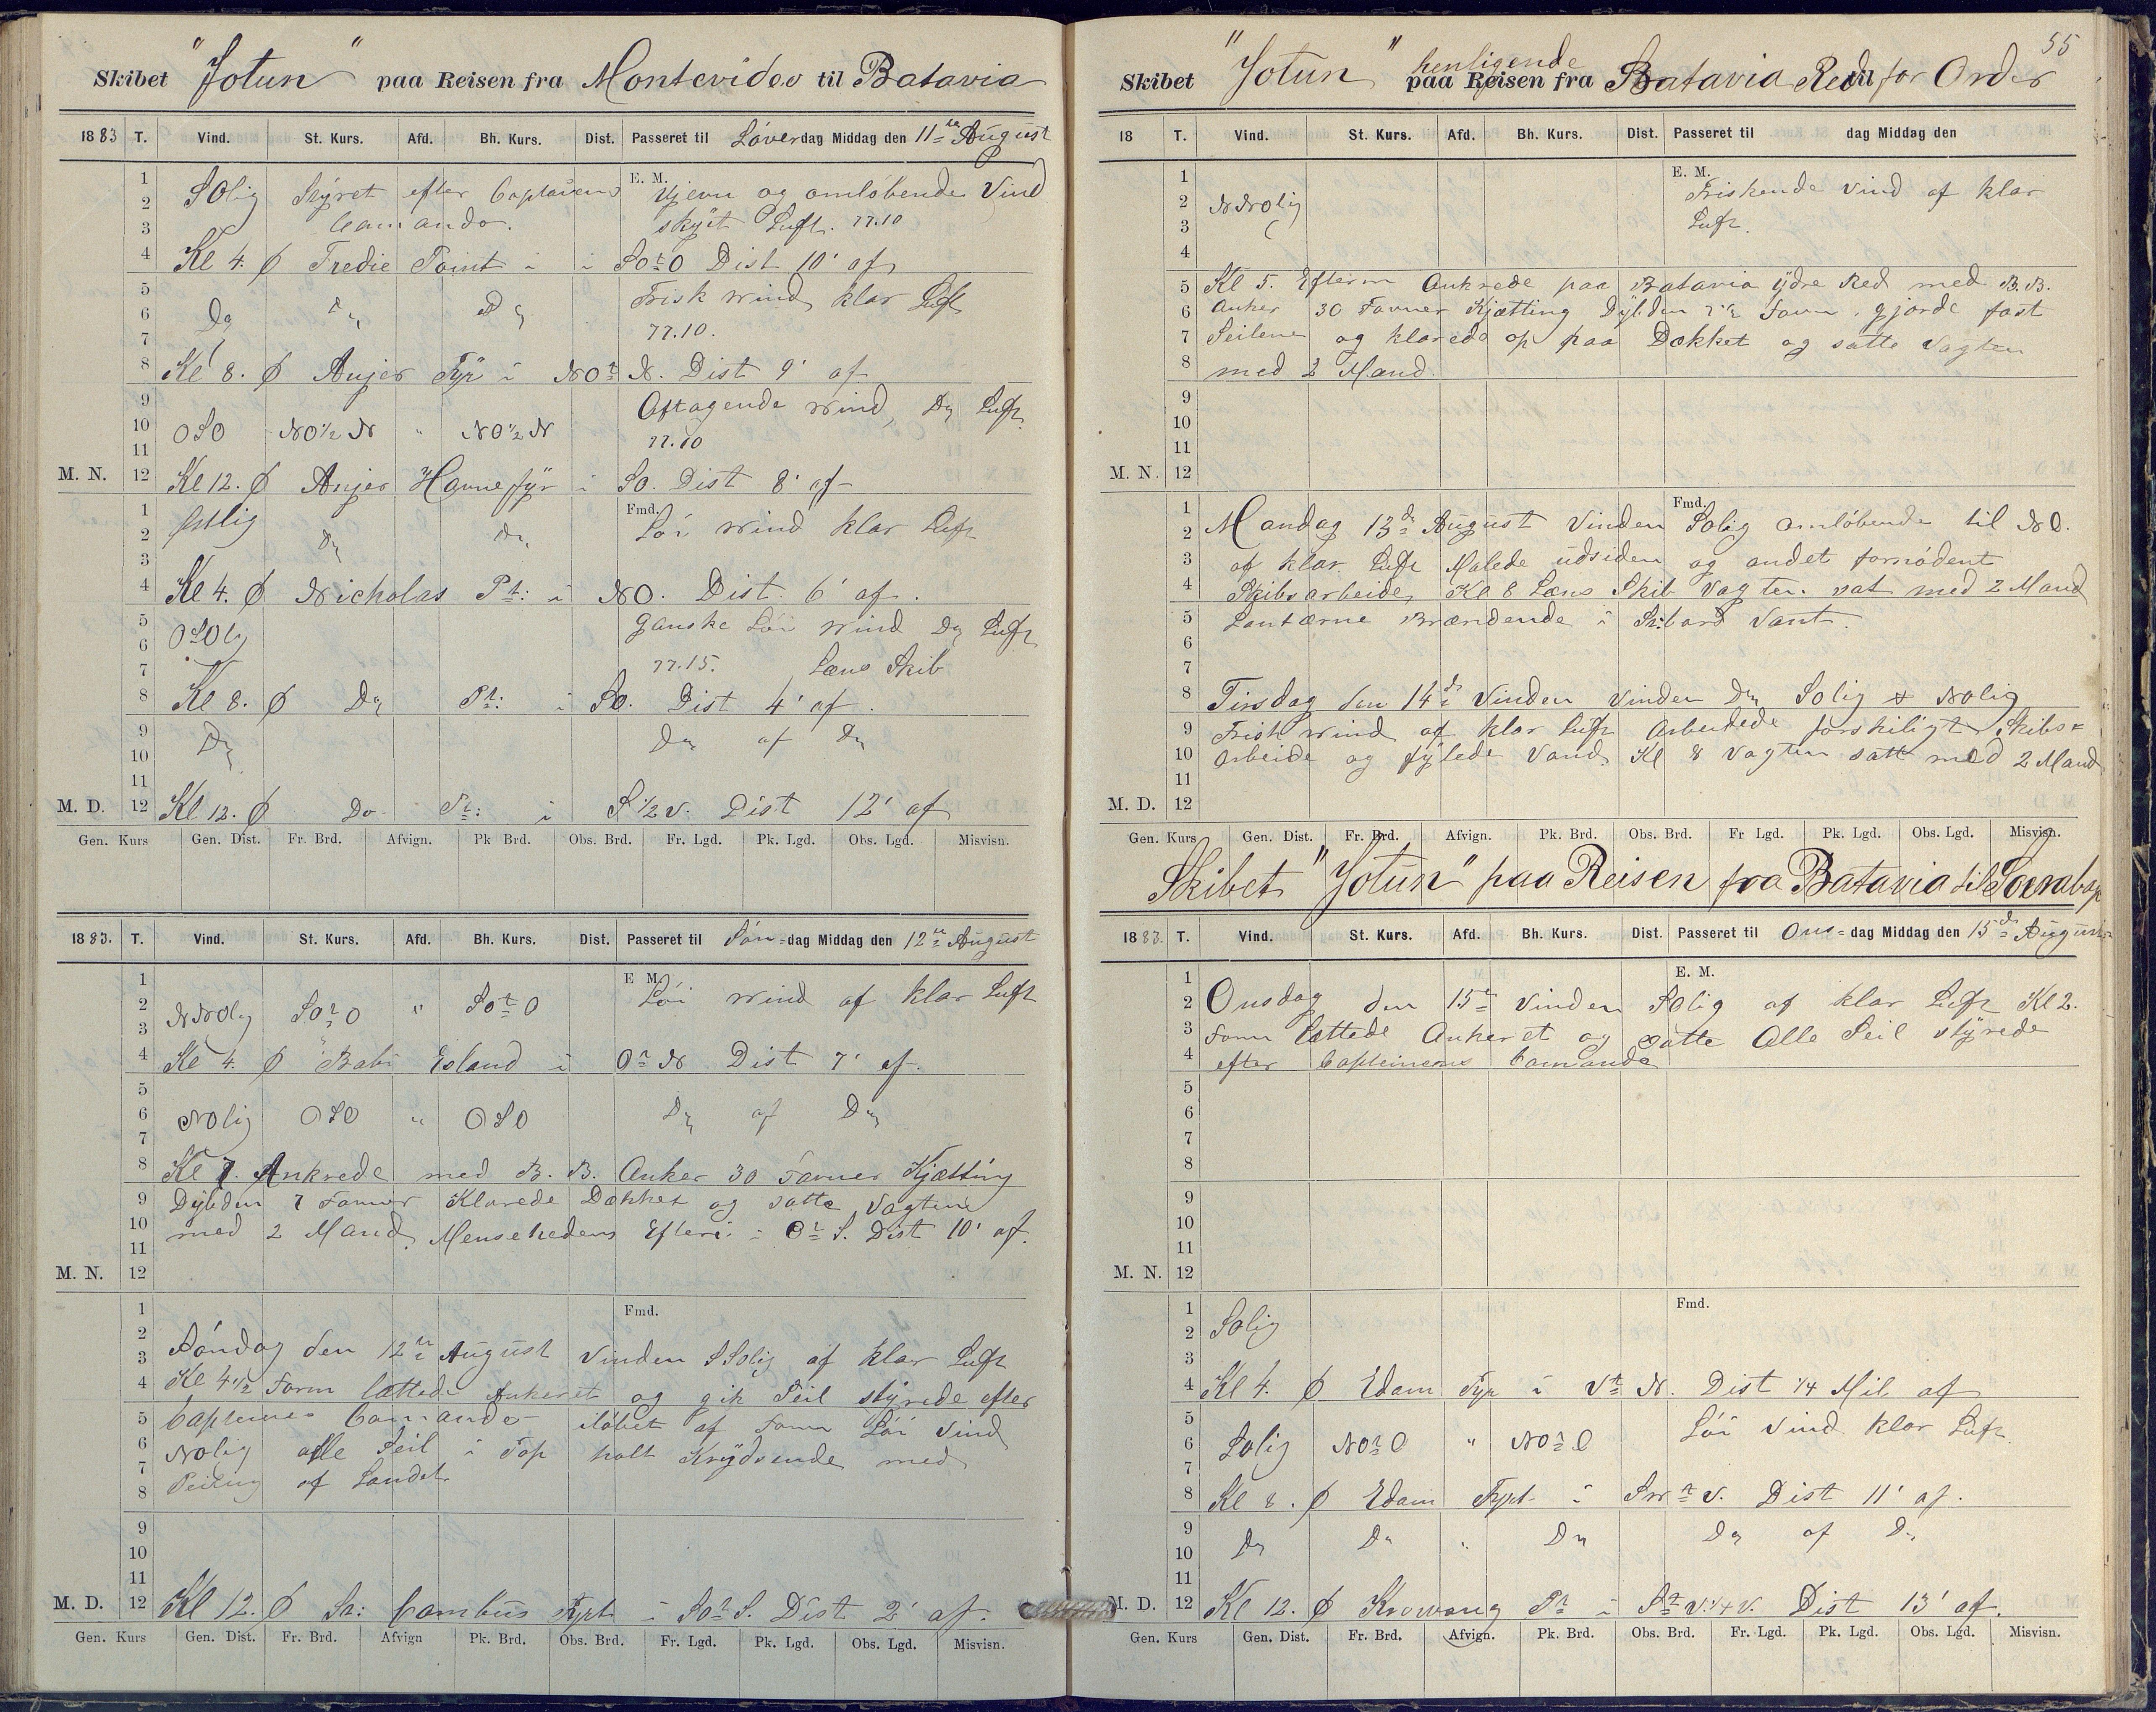 Skibet "Jotun" paa Reisen fra Montevideo til Batavia
1883 T. Vind. St. Kurs. Afd. Bh. Kurs. Dist. Passeret til Löverdag Middag den 11te August
E. M.
1 2 3 4 5 6 7 8 9 10 11 12
SOlig Styret efter Captainens Ujevn og omlöbende Vind
Comando. skyet Luft. 77.10
Kl 4. Ø Tredie Point i SOtO Dist 10' af
Do Do Do Frisk Wind klar Luft
77.10.
Kl 8. Ø Anjer Fyr i NOtN. Dist 9' af
Aftagende Wind, Do Luft
OSO NO 1/2 N " NO 1/2 N 77.10
M. N. Kl 12. Ø Anjer Havnefyr i SO. Dist 8' af
Fmd.
1 2 3 4 5 6 7 8 9 10 11 12
Østlig Do Do Löi Wind klar Luft
Kl 4. Ø Nicholas Pt: i NO. Dist. 6' af.
OSOlg Ganske Löi Wind Do Luft
77.15. Læns Skib
Kl 8. Ø Do Pt: i SO. Dist 4' af.
Do Do af Do
M. D. Kl 12. Ø Do Pt: i S 1/2 V. Dist 12' af
Gen. Kurs Gen. Dist. Fr. Brd. Afvign. Pk Brd. Obs. Brd. Fr. Lgd. Pk. Lgd. Obs. Lgd. Misvisn.
1883. T. Vind. St. Kurs. Afd. Bh. Kurs. Dist. Passeret til Sön-dag Middag den 12te August
E M.
1 2 3 4 5 6 7 8 9 10 11 12
Löi Wind af klar Luft
NNOlg SOtO " SOtO
Kl 4. Ø Babi Esland i OtN Dist 7' af.
NOlig OSO " OSO Do af Do
Kl 7. Ankrede med B. B. Anker 30 Favner Kjætting
Dybden 7 Favner Klarede Dækket og satte Vagten
med 2 Mand. i OtS. Dist 10' af.
M. N.
Fmd.
1 2 3 4 5 6 7 8 9 10 11 12
Söndag den 12te August Vinden SSOlig af klar Luft
Kl 4 1/2 Form lættede Ankeret og gik Seil styrede efter
Captienes Comando ilöbet af Form Löi Vind
NOlig alle Seil i Top holt Krydsende med
Peiling af Landet.
M. D. Kl 12. Ø Sa: Combüs Fyrt i SOtS. Dist 2' af.
Gen. Kurs Gen. Dist. Fr. Brd. Afvign Pk. Brd. Obs. Brd. Fr. Lgd. Pk. Lgd. Obs. Lgd. Misvisn.
55
henligende
Skibet "Jotun" paa Reisen fra Batavia Red til for Order
18 T. Vind. St. Kurs. Afd. Bh. Kurs. Dist. Passeret til dag Middag den
E. M.
1 2 3 4 5 6 7 8 9 10 11 12
Friskende Vind af klar
NNOlig Luft.
Kl 5. Efterm Ankrede paa Batavia ydre Red med B.B.
Anker 30 Favner Kjætting Dybden 7 1/2 Favn. gjorde fast
Seilene og klarede op paa Dækket og satte Vagten
med 2 Mand.
M. N.
Fmd.
1 2 3 4 5 6 7 8 9 10 11 12
Mandag 13de August Vinden SOlig omlöbende til NO.
af klar Luft Malede udsiden og andet fornödent
Skibsarbeide, Kl 8 Læns Skib Vagten. sat med 2 Mand
Lantærne Brændende i St:bord Vant.
Tirsdag den 14de Vinden Vinden Do SOlig & NOlig
Frisk Wind af klar Luft Arbeidede forskiligt Skibs=
arbeide og fylede Vand. Kl 8 Vagten satt med 2 Mand
M. D.
Gen. Kurs Gen. Dist. Fr. Brd. Afvign. Pk. Brd. Obs. Brd. Fr Lgd. Pk. Lgd. Obs. Lgd. Misvisn.
Skibet "Jotun" paa Reisen fra Batavia til
1883. T. Vind. St. Kurs. Afd. Bh. Kurs. Dist. Passeret til Ons=dag Middag den 15de August
E. M.
1 2 3 4 5 6 7 8 9 10 11 12
Onsdag den 15de Vinden SOlig af klar Luft Kl 2.
Form lættede Ankeret og satte Alle Seil styrede
efter Capteinens Comando
M. N.
Fmd.
1 2 3 4 5 6 7 8 9 10 11 12
SOlig
Kl 4. Ø Edam Fyr i VtN. Dist 1/4 Mil af
Löi Vind klar Luft.
SOlig NOtO " NOtO
Kl 8. Ø Edam Fyrt i SWtV. Dist 11' af.
Do Do " Do Do af Do
M. D. Kl 12. Ø Krowong Pt i StV.1/4V. Dist 13' af.
Gen. Kurs Gen. Dist. Fr. Brd. Afvign. Pk. Brd. Obs. Brd. Fr. Lgd. Pk. Lgd. Obs. Lgd. Misvisn.